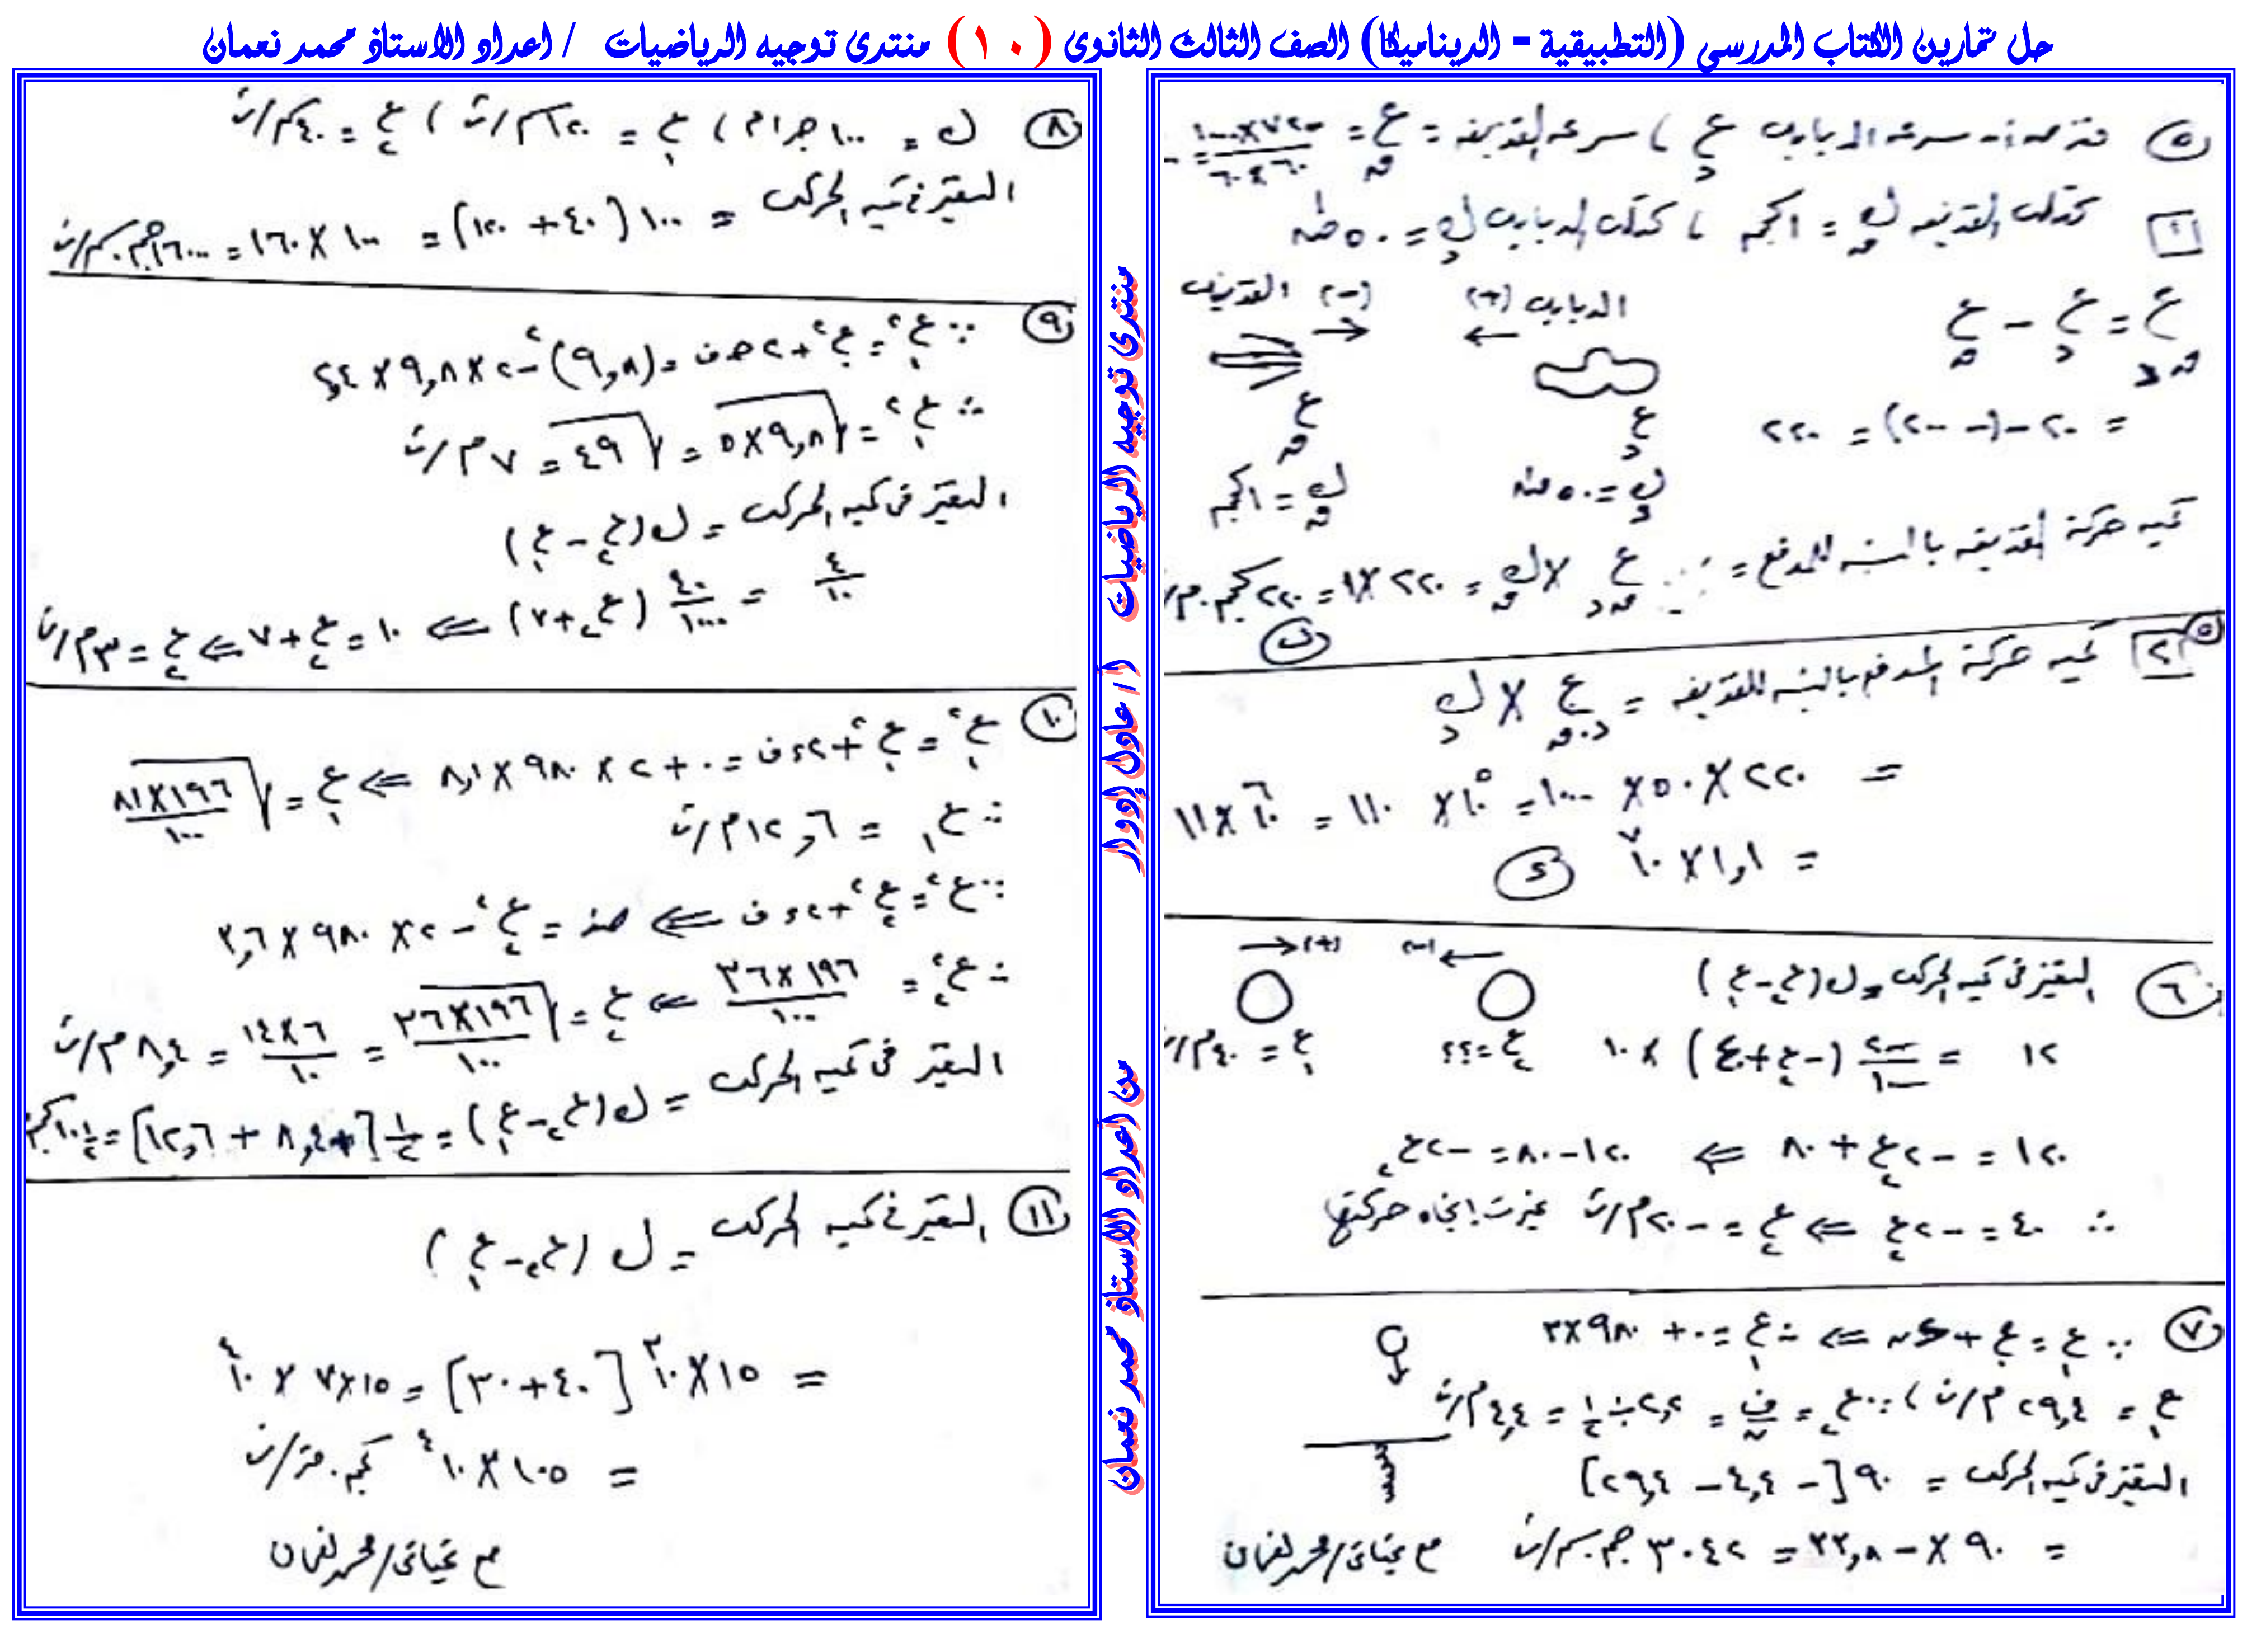 حل تمارين الكتاب المدرسى (التطبيقية - الديناميكا) الصف الثالث الثانوى (١٠) منتدى توجيه الرياضيات / اعداد الاستاذ محمد نعمان
٥ سرعه الدبابه ع د ، سرعه القذيفه = ع ق =
١ كتله القذيفه ك ق = ١ كجم ، كتله الدبابه ك د = ٥٠ طن
الدبابه (+) (-) القذيفه
ع ق د = ع د - ع ق
ع د ع ق
= ٢٠ - (- ٢٠٠) = ٢٢٠
ك د = ٥٠ طن ك ق = ١ كجم
كميه حركة القذيفه بالنسبه للمدفع = ع ق د × ك ق = ٢٢٠ × ١ = ٢٢٠ كجم.م/ث
ب
٥ ٢ كميه حركة المدفع بالنسبه للقذيفه = ع د.ق × ك د
= ٢٢٠ × ٥٠ × ١٠٠٠ = ١١٠ × ١٠^٥ = ١١ × ١٠^٦
= ١,١ × ١٠^٧ د
٦ التغير فى كميه الحركه = ك (ع٢ - ع١)
(-) (+)
ع١ = ٤٠ م/ث ع٢ = ؟؟
١٢ = (-ع٢ + ٤٠) × ١٠
١٢٠ = - ٢ع٢ + ٨٠ ⇐ ١٢٠ - ٨٠ = - ٢ع٢
∴ ٤٠ = - ٢ع٢ ⇐ ع٢ = - ٢٠ م/ث غيرت اتجاه حركتها
٧ ∵ ع١ = ع٠ + ءن ⇐ ∴ ع١ = ٠ + ٩٨٠ × ٣
ع١ = ٢٩,٤ م/ث ، ∵ ع٢ = ف/ن = ٢,٢ ÷ ١/٢ = ٤,٤ م/ث
التغير فى كميه الحركه = ٩٠ [- ٤,٤ - ٢٩,٤]
= ٩٠ × - ٣٣,٨ = ٣٠٤٢ جم.سم/ث
مع تحياتى/محمد نعمان
٨ ك = ١٠٠ جرام ، ع١ = ١٢٠ سم/ث ، ع٢ = ٤٠ سم/ث
التغير فى كميه الحركه = ١٠٠ (٤٠ + ١٢٠) = ١٠٠ × ١٦٠ = ١٦٠٠٠ جم.سم/ث
٩ ∵ ع١^٢ = ع٠^٢ + ٢حـ ف = (٩,٨)^٢ - ٢ × ٩,٨ × ٢,٤
∴ ع١^٢ = √(٩,٨ × ٥) = √٤٩ = ٧ م/ث
التغير فى كميه الحركه = ك (ع٢ - ع١)
٤/١٠ = ٤٠/١٠٠٠ (ع٢ + ٧) ⇐ ١٠ = ع٢ + ٧ ⇐ ع٢ = ٣ م/ث
١٠ ع١^٢ = ع٠^٢ + ٢ءف = ٠ + ٢ × ٩٨٠ × ٨,١ ⇐ ع١ = √(١٩٦ × ٨١/١٠٠)
∴ ع١ = ١٢,٦ م/ث
∵ ع^٢ = ع٢^٢ + ٢ءف ⇐ صفر = ع٢^٢ - ٢ × ٩٨٠ × ٣,٦
∴ ع٢^٢ = ١٩٦ × ٣٦/١٠٠ ⇐ ع٢ = √(١٩٦ × ٣٦/١٠٠) = ٦ × ١٤/١٠ = ٨,٤ م/ث
التغير فى كميه الحركه = ك (ع٢ - ع١) = ١/٢ [٨,٤ + ١٢,٦] = ١٠ ١/٢ كجم
١١ التغير فى كميه الحركه = ك (ع٢ - ع١)
= ١٥ × ١٠^٣ [٤٠ + ٣٠] = ١٥ × ٧ × ١٠^٤
= ١٠٥ × ١٠^٤ كجم.متر/ث
مع تحياتى/محمد نعمان
منتدى توجيه الرياضيات أ/ عادل إدوار
من اعداد الاستاذ محمد نعمان